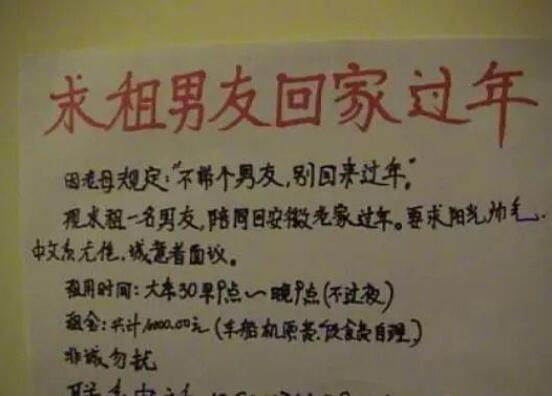 求租男友回家过年
因老母规定:"不带个男友,别回来过年。"
现求租一名男友,陪同回安徽老家过年。要求阳光帅气,
中文系尤佳,诚意者面议。
租用时间:大年30早9点~晚9点(不过夜)
租金:共计1000.00元(车船机票费、饮食费自理)
非诚勿扰